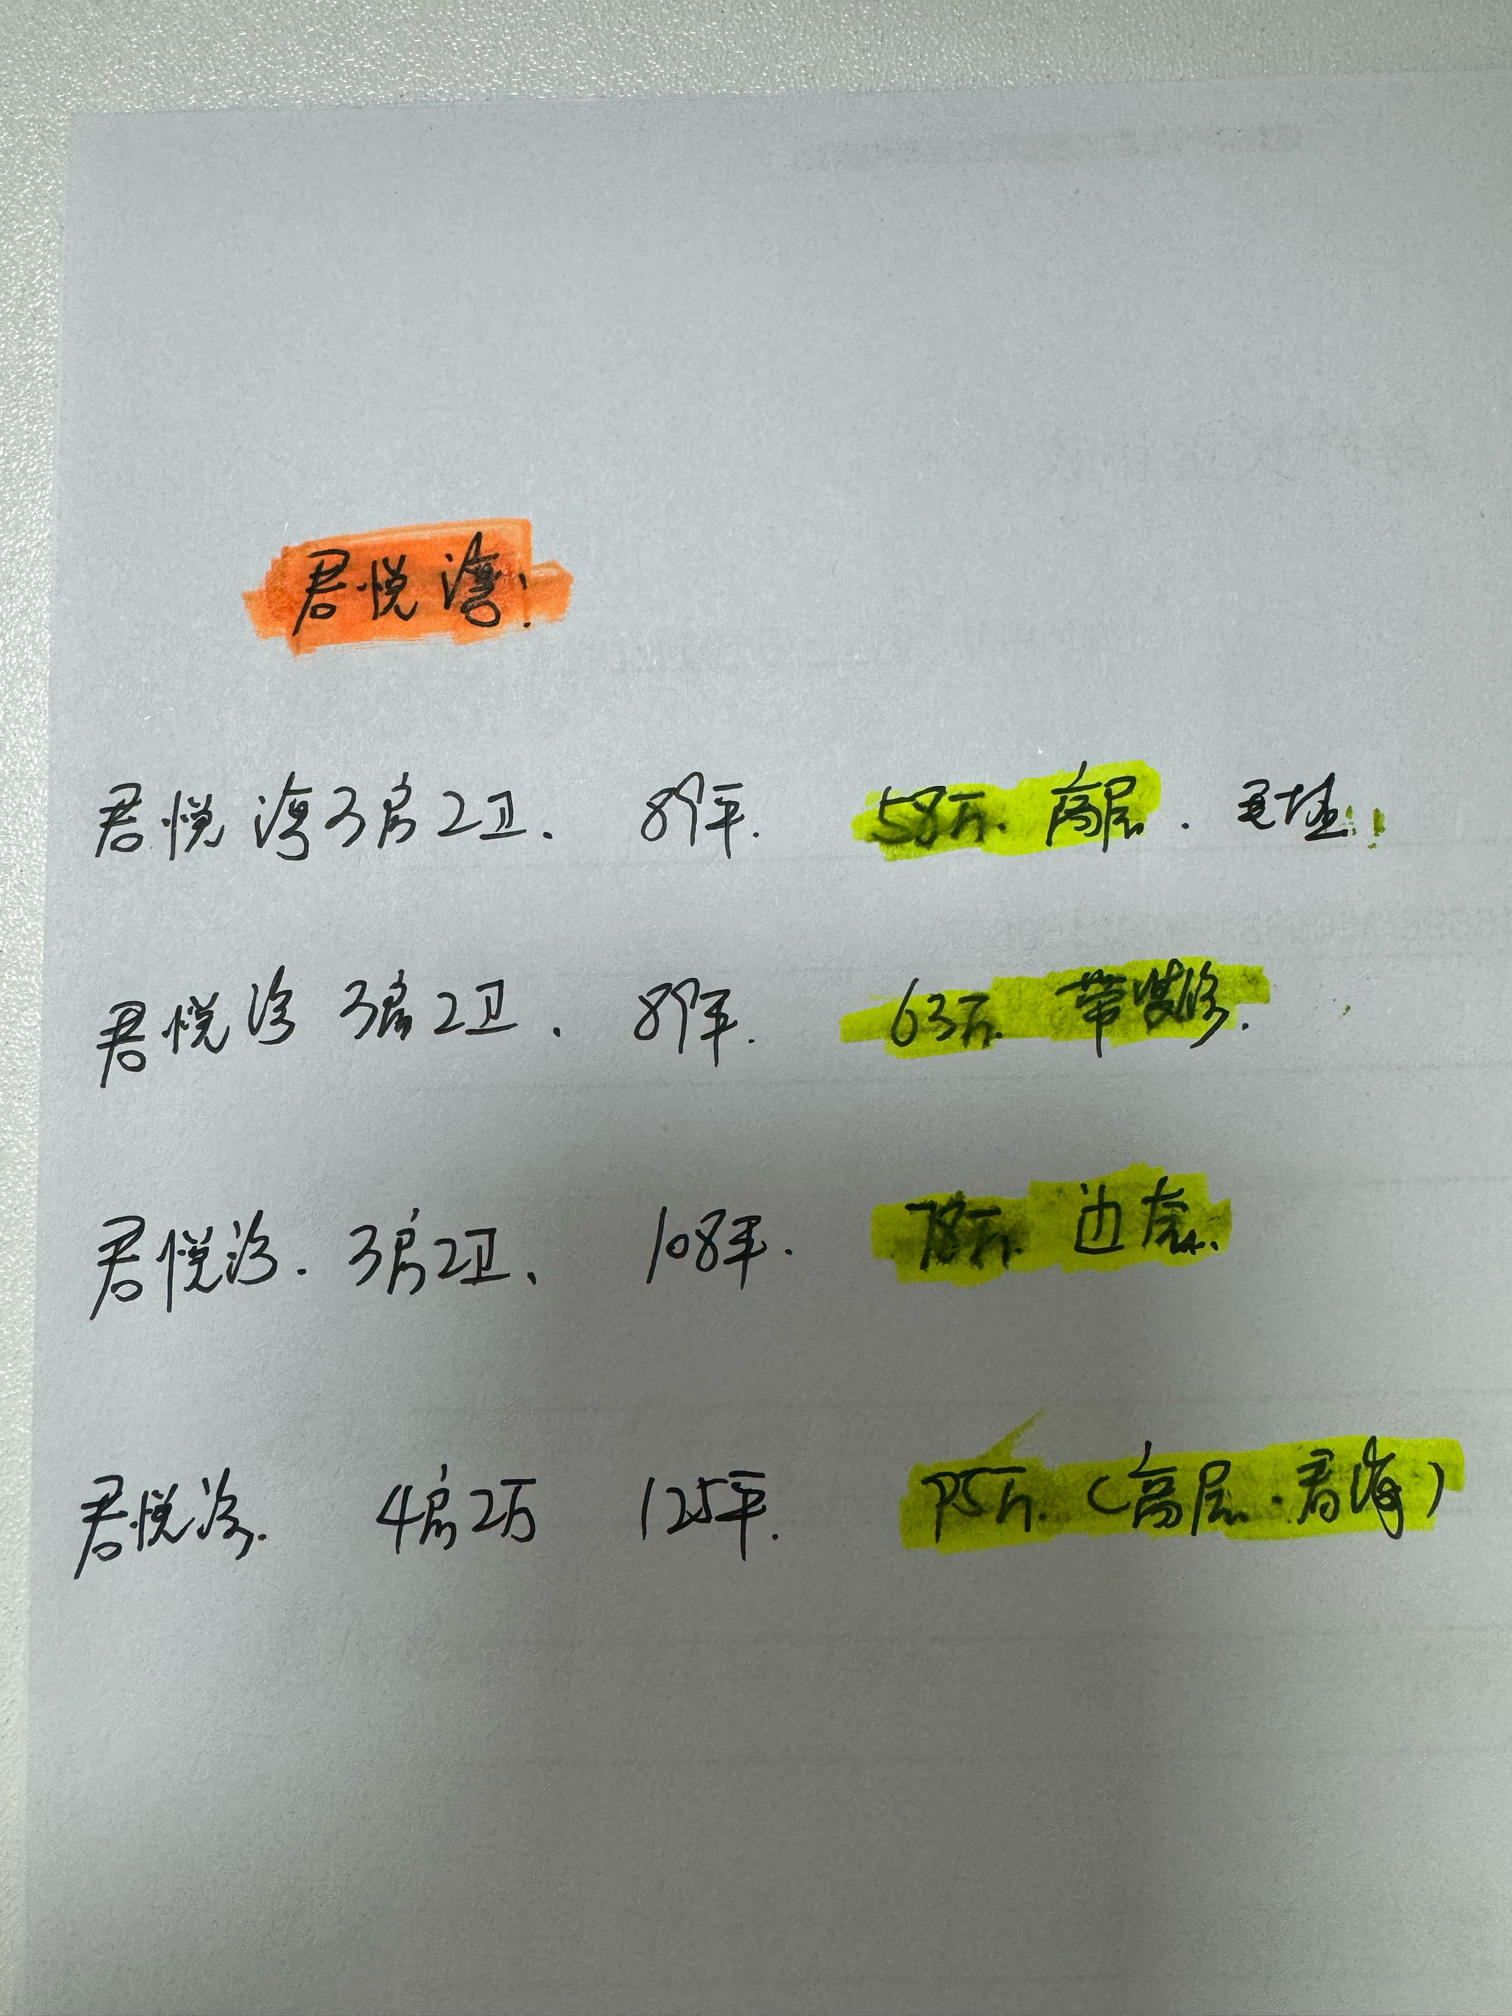 君悦湾:
君悦湾3房2卫、 89平. 58万. 高层. 毛坯.
君悦湾 3房2卫、 89平. 63万. 带装修.
君悦湾. 3房2卫、 108平. 78万. 边套.
君悦湾. 4房2万 125平. 95万. (高层.看海)